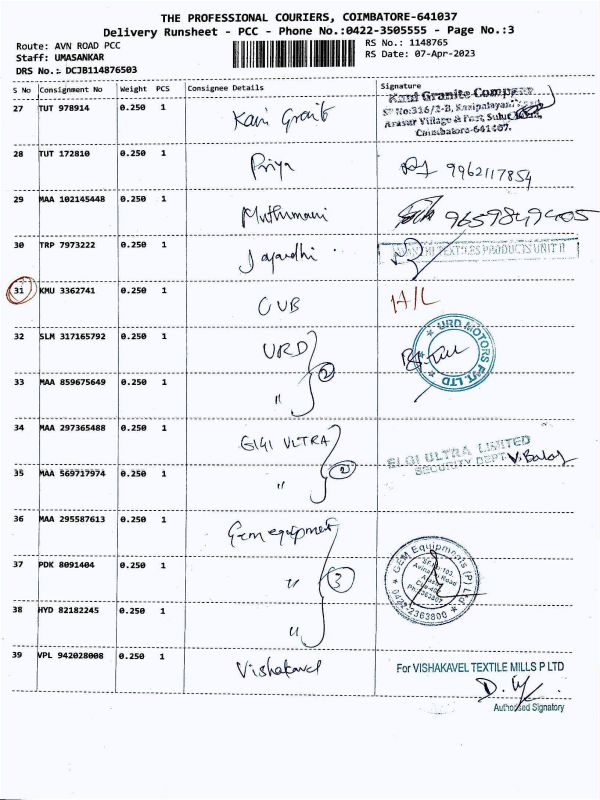 THE PROFESSIONAL COURIERS, COIMBATORE-641037
Delivery Runsheet - PCC - Phone No.:0422-3505555 - Page No.:3
Route: AVN ROAD PCC
Staff: UMASANKAR
DRS No.: DCJB114876503
RS No.: 1148765
RS Date: 07-Apr-2023
S No Consignment No Weight PCS Consignee Details Signature
27 TUT 978914 0.250 1 Kavi Granit
Kavi Granite Company
SF No:316/2-B, Kanipalayam
Arasur Village & Post, Sulur
Coimbatore-641407.
28 TUT 172810 0.250 1 Priya 9962117854
29 MAA 102145448 0.250 1 Muthumani 9659849405
30 TRP 7973222 0.250 1 Jayandhi
TEXTILES PRODUCTS UNIT II
31 KMU 3362741 0.250 1 CUB H/L
32 SLM 317165792 0.250 1 URD
URD MOTORS PVT. LTD
33 MAA 859675649 0.250 1 " 2
34 MAA 297365488 0.250 1 GIGI ULTRA
ELGI ULTRA LIMITED
SECURITY DEPT V. Balaj
35 MAA 569717974 0.250 1 " 2
36 MAA 295587613 0.250 1 Gem equipment
GEM Equipments (P) Ltd
SF.No:103,
Avinashi Road
0422-2363800
37 PDK 8091404 0.250 1 " 3
38 HYD 82182245 0.250 1 "
39 VPL 942028008 0.250 1 Vishakavel
For VISHAKAVEL TEXTILE MILLS P LTD
Authorised Signatory